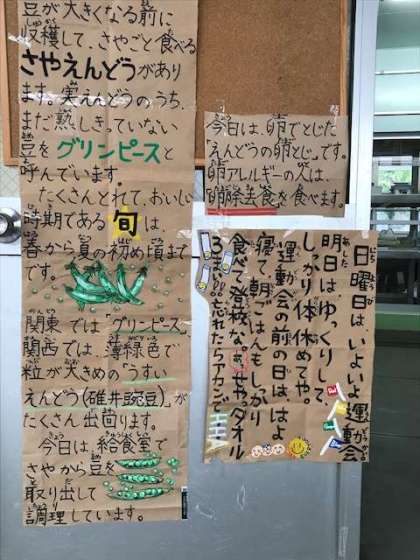 豆が大きくなる前に
収穫して、さやごと食べる
さやえんどうがあり
ます。実えんどうのうち、
まだ熟しきっていない
豆をグリンピースと
呼んでいます。
たくさんとれて、おいしい
時期である旬は、
春から夏の初め頃まで
です。
関東では「グリンピース」、
関西では、薄緑色で
粒が大きめの「うすい
えんどう(碓井豌豆)」が
たくさん出回ります。
今日は、給食室で
さやから豆を
取り出して
調理しています。
今日は、卵でとじた
「えんどうの卵とじ」です。
卵アレルギーの人は、
卵除去食を食べます。
日曜日は、いよいよ運動会
明日は、ゆっくりして、
しっかり体休めてや。
運動会の前の日は、はよ
寝て、朝ごはんもしっかり
食べ、登校な。タオル
3まい!!忘れたらアカンで